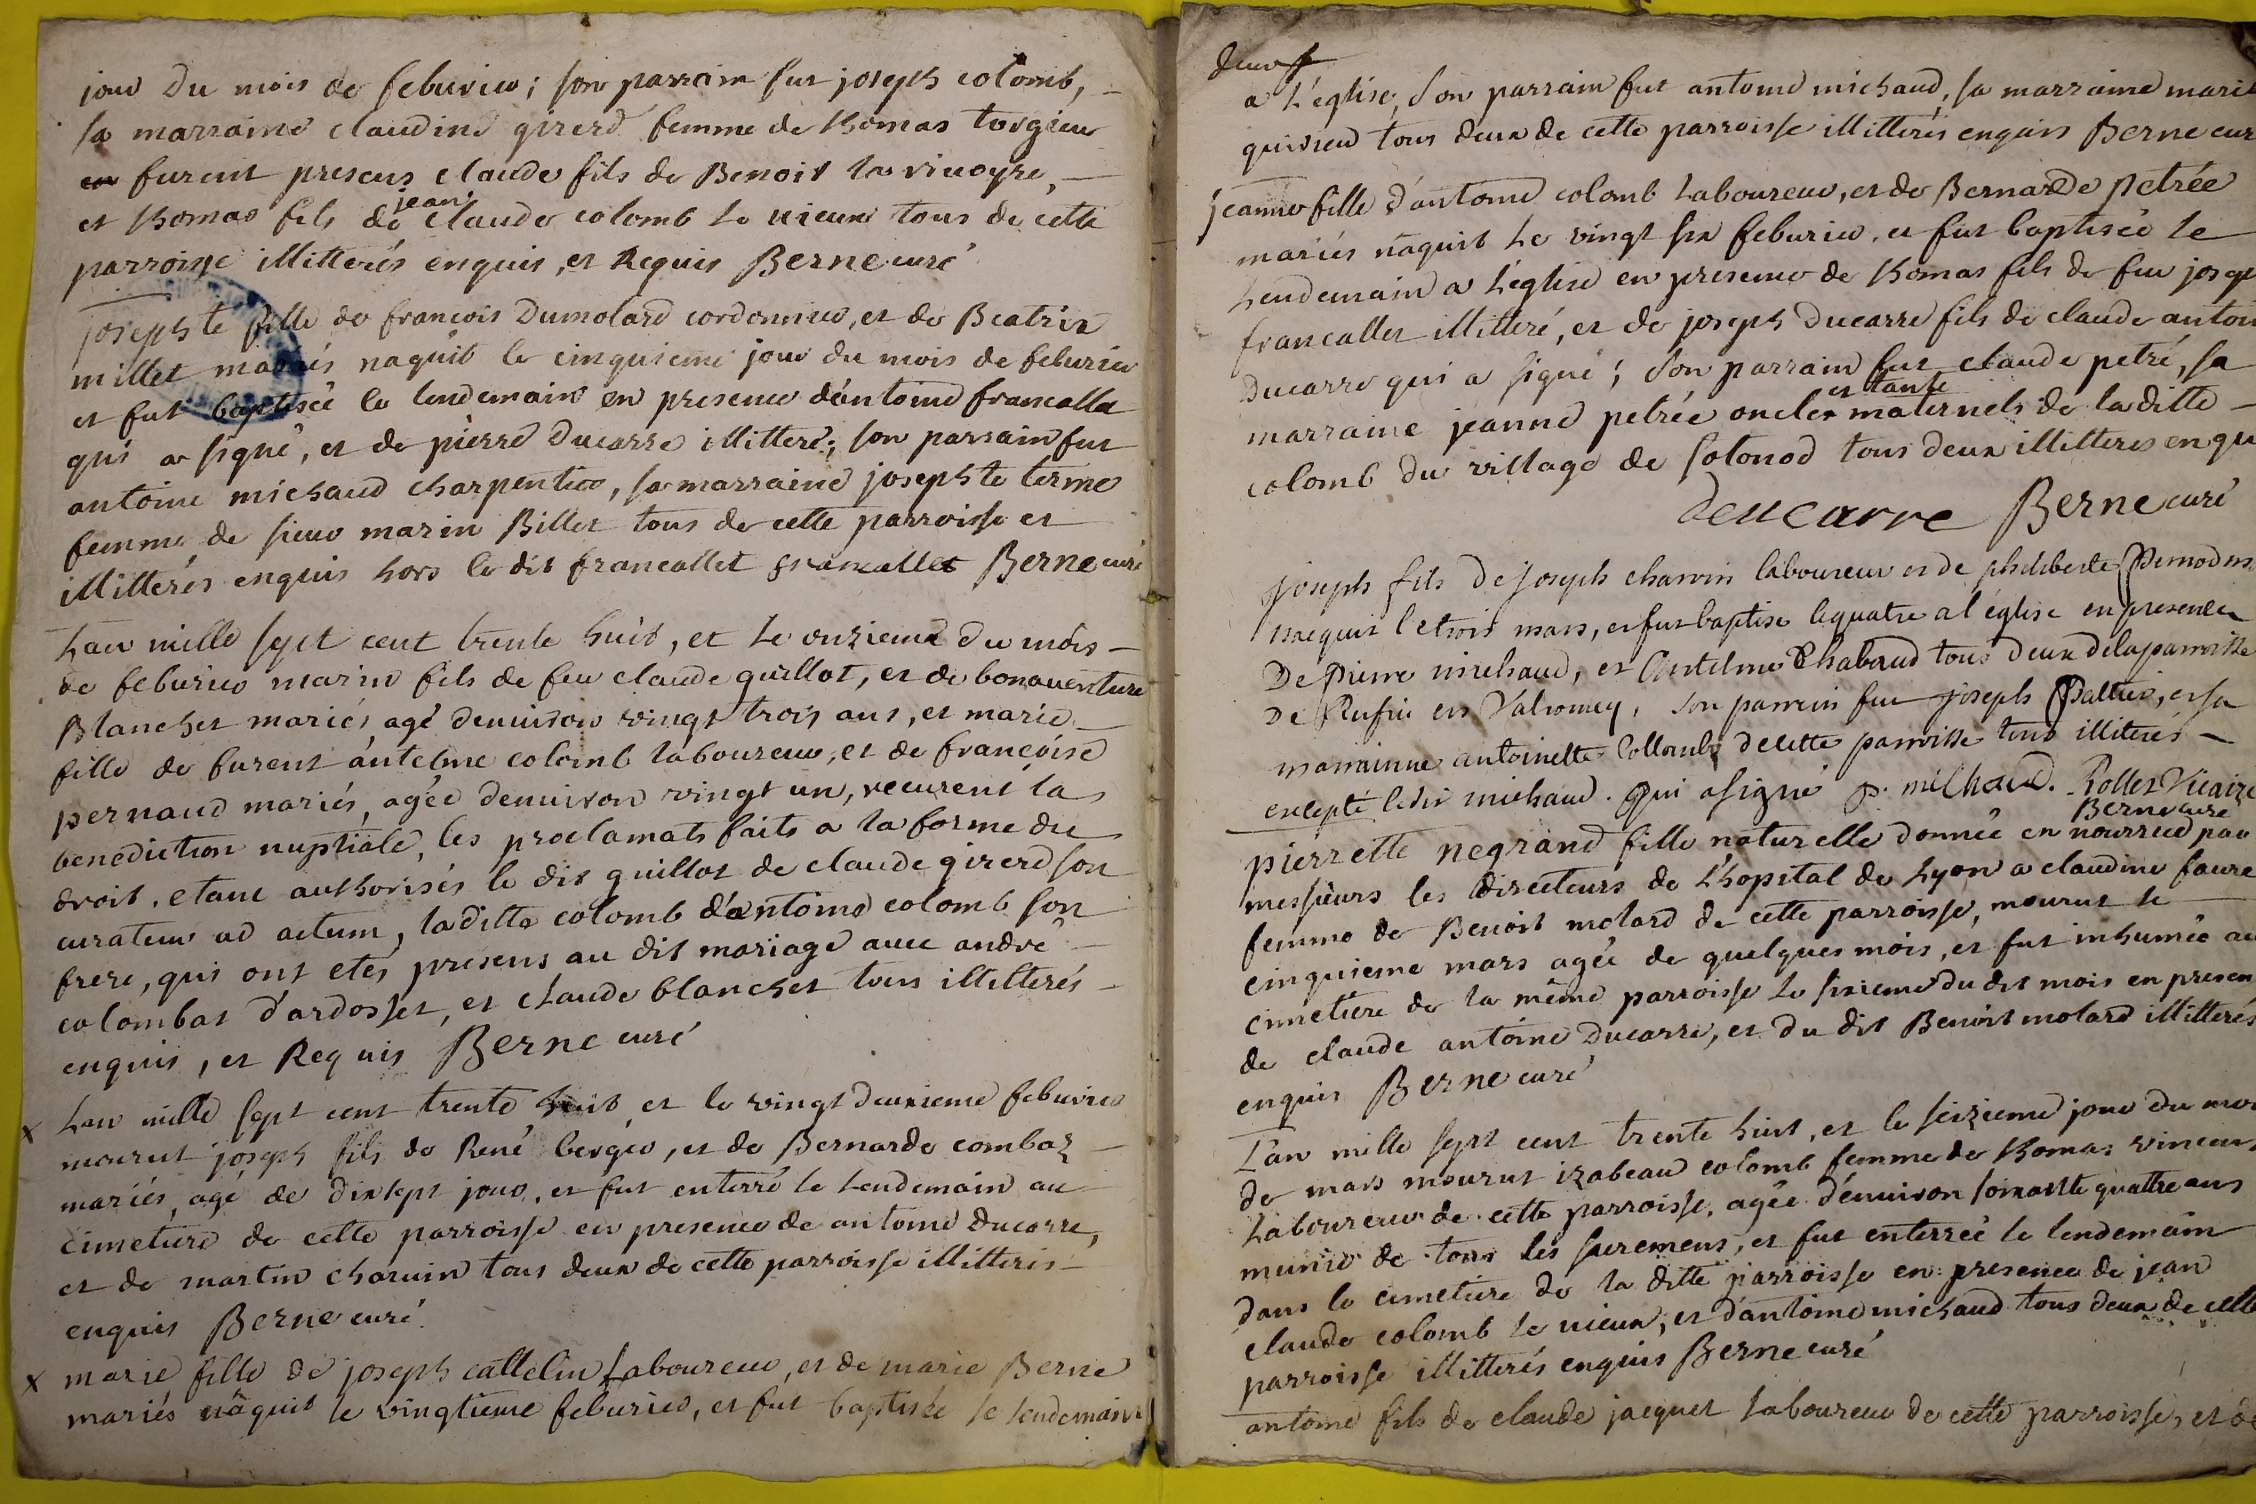 jour du mois de feburier; son parrain fut joseph colomb,
sa marraine claudine girerd femme de thomas
furent presens claude fils de Benoit
et thomas fils de jean claude colomb le vieux tous de cette
parroisse illitterés enquis, et Requis Berne curé
josephte fille de francois Dumolard cordonnier, et de Beatrix
millet mariés naquit le cinquieme jour du mois de feburier
et fut baptisée le lendemain en presence d'antoine francallet
qui a signé, et de pierre Ducarre illitteré; son parrain fut
antoine michaud charpentier, sa marraine josephte terme
femme de sieur marin Billet tous de cette parroisse et
illitterés enquis hors le dit francallet francallet Berne curé
L'an mille sept cent trente huit, et le onzieme du mois
de feburier marin fils de feu claude guillot, et de bonaventure
Blanchet mariés, agé denviron vingt trois ans, et marie
fille de furent antelme colomb laboureur, et de françoise
pernaud mariés, agée denviron vingt un, recurent la
benediction nuptiale, les proclamats faits a la forme du
droit, etant authorisés le dit guillot de claude girerd son
curateur ad actum, laditte colomb d'antoine colomb son
frere, qui ont etés presens au dit mariage avec andré
colombat d'ardosset, et claude blanchet tous illitterés
enquis, et Requis Berne curé
x L'an mille sept cent trente huit et le vingt deuxieme feburier
mourut joseph fils de René bergér, et de Bernarde combaz
mariés, agé de dixsept jour, et fut enterré le lendemain au
cimetiere de cette parroisse en presence de antoine ducarre,
et de martin charvin tous deux de cette parroisse illitterés
enquis Berne curé.
x marie fille de joseph cattelin Laboureur, et de marie Berne
mariés naquit le vingtieme feburier, et fut baptisée le lendemain
a l'eglise, son parrain fut antoine michaud, sa marraine marie
tous deux de cette parroisse illitterés enquis Berne cur
jeanne fille d'antoine colomb Laboureur, et de Bernarde petrée
mariés naquit le vingt six feburier, et fut baptisée le
Lendemain a l'eglise en presence de thomas fils de feu josep
francallet illitteré, et de joseph Ducarre fils de claude antoin
Ducarre qui a signé; son parrain fut claude petré, sa
marraine jeanne petrée oncle et tante maternels de laditte
colomb du village de solonod tous deux illitterés enqu
deucarre Berne curé
joseph fils De joseph charvin laboureur et de philiberte
naequit le trois mars, et fut baptise le quatre a l'église en presence
De Pierre michaud, et Antelme Chabaud tous deux de la parroisse
De Rufieu en Valromey, son parrein fut joseph et sa
marrainne antoinette Collomb de cette parroisse tous illiterés
excepté ledit michaud. Qui a signé p. michaud. Rollet Vicaire
Berne curé
pierrette negrand fille naturelle donnée en nourrice par
messieurs les directeurs de L'hopital de Lyon a claudine faure
femme de Benoit molard de cette parroisse, mourut le
cinquieme mars agée de quelques mois, et fut inhumée au
cimetiere de la même parroisse le sixieme du dit mois en presen
de claude antoine Ducarre, et du dit Benoit molard illitterés
enquis Berne curé
L'an mille sept cent trente huit, et le seizieme jour du moi
de mars mourut izabeau colomb femme de thomas vincent
Laboureur de cette parroisse, agée d'environ soixante quattre ans
munie de tous les sacremens, et fut enterrée le lendemain
dans le cimetiere de la ditte parroisse en presence de jean
claude colomb le vieux, et d'antoine michaud tous deux de cette
parroisse illitterés enquis Berne curé
antoine fils de claude jacquet Laboureur de cette parroisse, et de